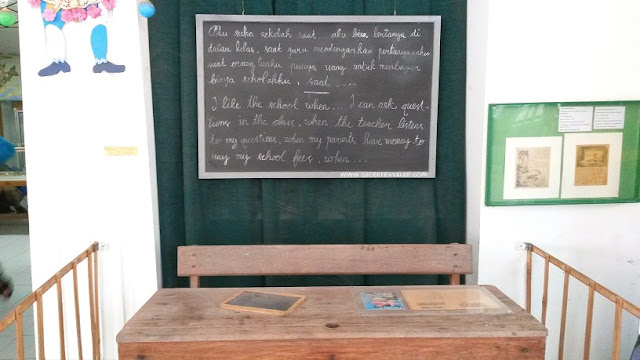 Aku suka sekolah saat... aku bisa bertanya di
dalam kelas, saat guru mendengarkan pertanyaanku
saat orang tuaku punya uang untuk membayar
biaya sekolahku, saat ....
I like the school when... I can ask quest-
ions in the class, when the teacher listens
to my questions, when my parents have money to
pay my school fees, when...